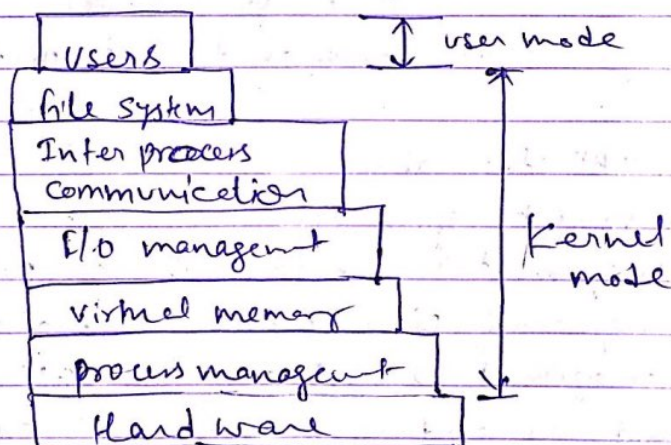 Users
user mode
file system
Inter process
communication
I/O management
Kernel
mode
virtual memory
process management
Hard ware